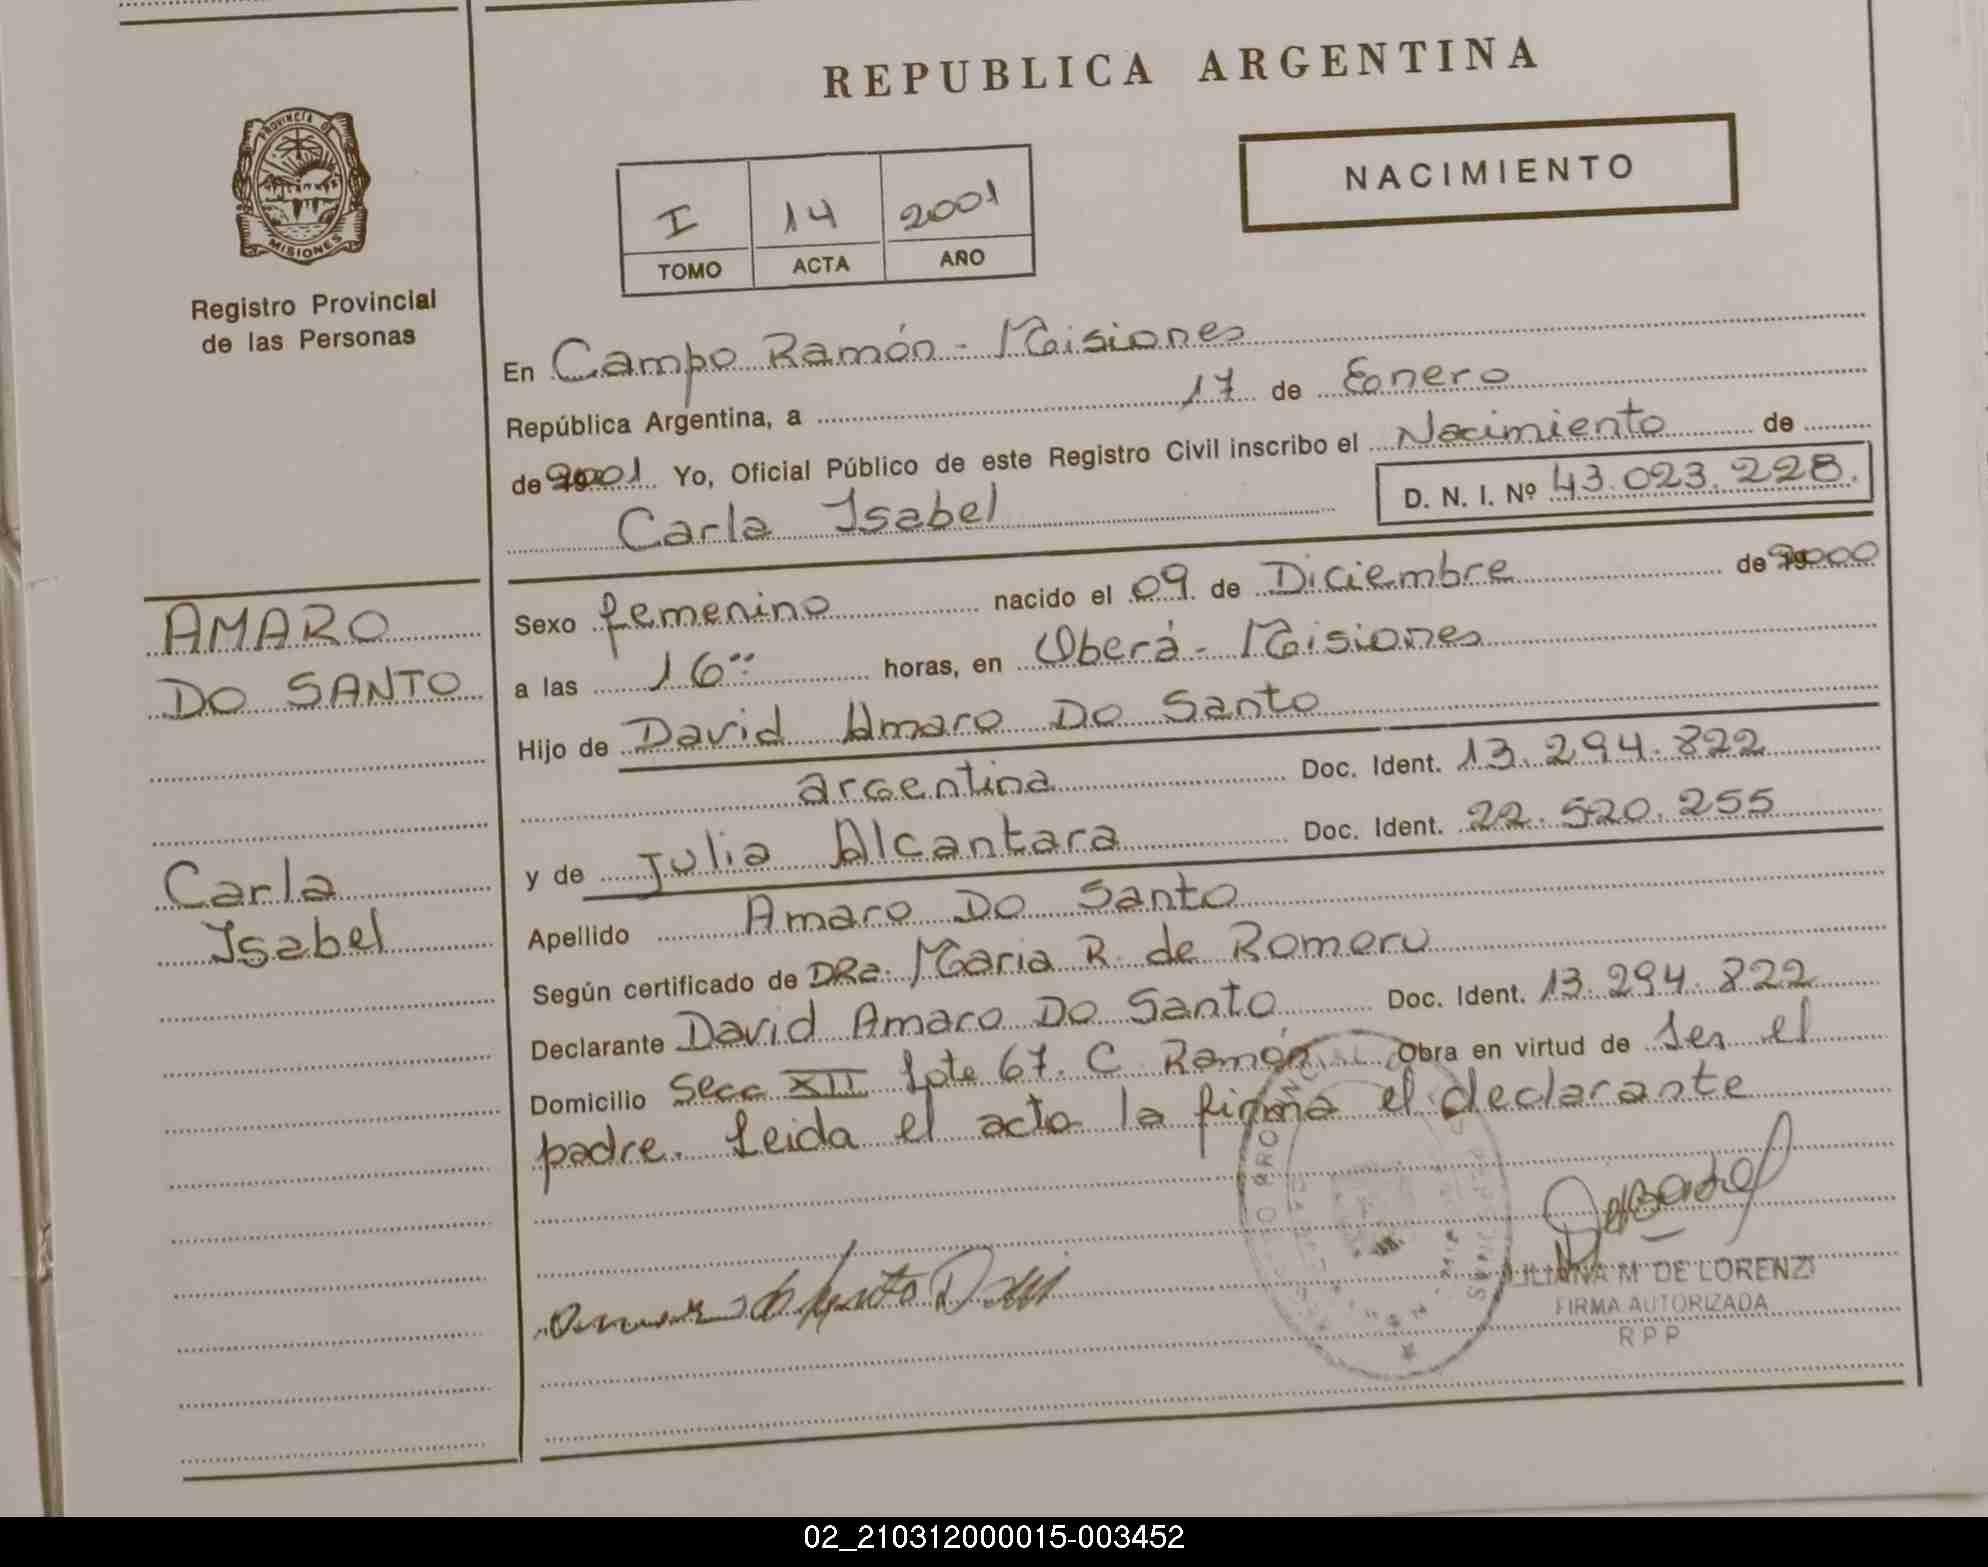 REPUBLICA ARGENTINA
PROVINCIA DE
MISIONES
Registro Provincial
de las Personas
NACIMIENTO
I 14 2001
TOMO ACTA AÑO
En Campo Ramón - Misiones
República Argentina, a 17 de Enero
de 2001 Yo, Oficial Público de este Registro Civil inscribo el Nacimiento de
Carla Isabel D. N. I. Nº 43.023.228.
AMARO
DO SANTO
Carla
Isabel
Sexo femenino nacido el 09 de Diciembre de 2000
a las 16 horas, en Oberá - Misiones
Hijo de David Amaro Do Santo
argentina Doc. Ident. 13.294.822
y de Julia Alcantara Doc. Ident. 22.520.255
Apellido Amaro Do Santo
Según certificado de DRa. Maria R. de Romero
Declarante David Amaro Do Santo Doc. Ident. 13.294.822
Domicilio Secc XII Lote 67. C. Ramón Obra en virtud de ser el
padre. Leida el acta la firma el declarante
JULIANA M DE LORENZI
FIRMA AUTORIZADA
R P P
02_210312000015-003452